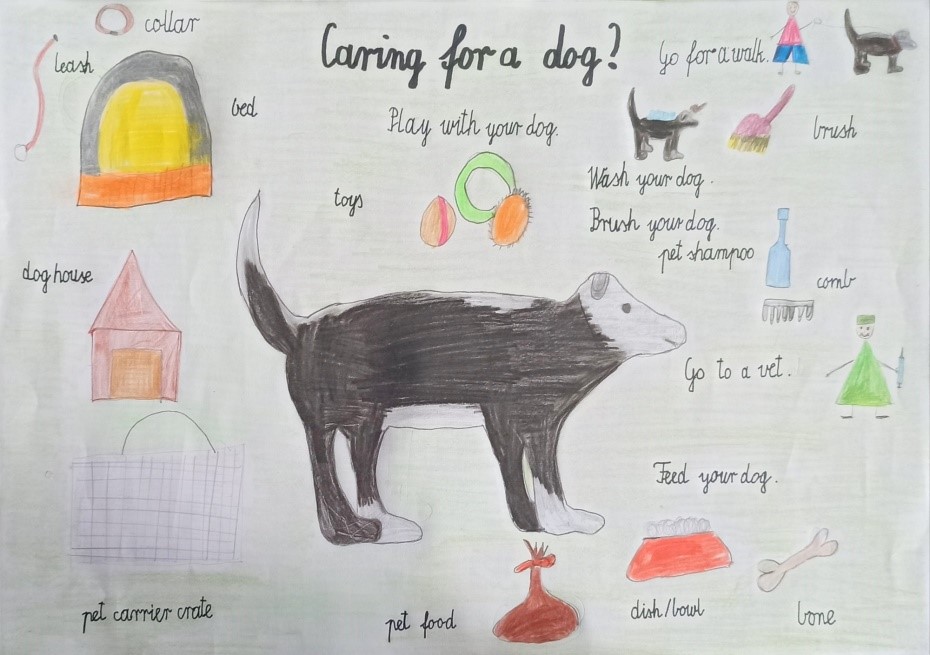 collar
Caring for a dog?
leash
Go for a walk.
bed
Play with your dog.
brush
toys
Wash your dog.
Brush your dog.
pet shampoo
dog house
comb
Go to a vet.
Feed your dog.
pet carrier crate
pet food
dish/bowl
bone